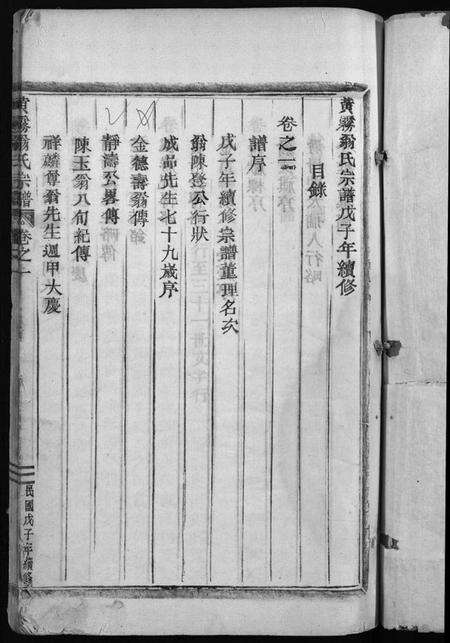 黃霧翁氏宗譜戊子年續修
目錄
卷之一
譜序
戊子年續修宗譜董理名次
翁陳登公行狀
成嵛先生七十九歲序
金德壽翁傳
靜濤公畧傳
陳玉翁八旬紀傳
祥麟尊翁先生週甲大慶
黃霧翁氏宗譜 卷之一
民國戊子年續修